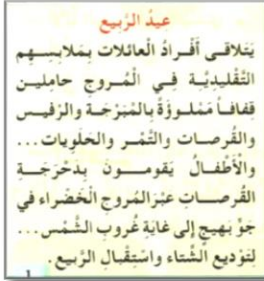 عيدُ الرَّبيعِ
يَتَلاقـى أَفْـرادُ الْعائلات بِمَلابِسِـهم
التَّقْليديَّة فِي الْمُـروجِ حامِليـن
قِفافاً مَمْلوؤَةً بِالمَبْرَجَة والرّفيس
والقُرصات والتَّمْـر والحَلَويات...
والْأَطْفـالُ يَقومـــونَ بِدَحْرَجَـةِ
القُرصـاتِ عَبْرَ المُروجِ الْخَضْراء في
جَوٍّ بَهيجٍ إلى غايَةِ غُروبِ الشَّمْس...
لِتَوْديعِ الشِّتاء واسْتِقْبالِ الرَّبيع.
1